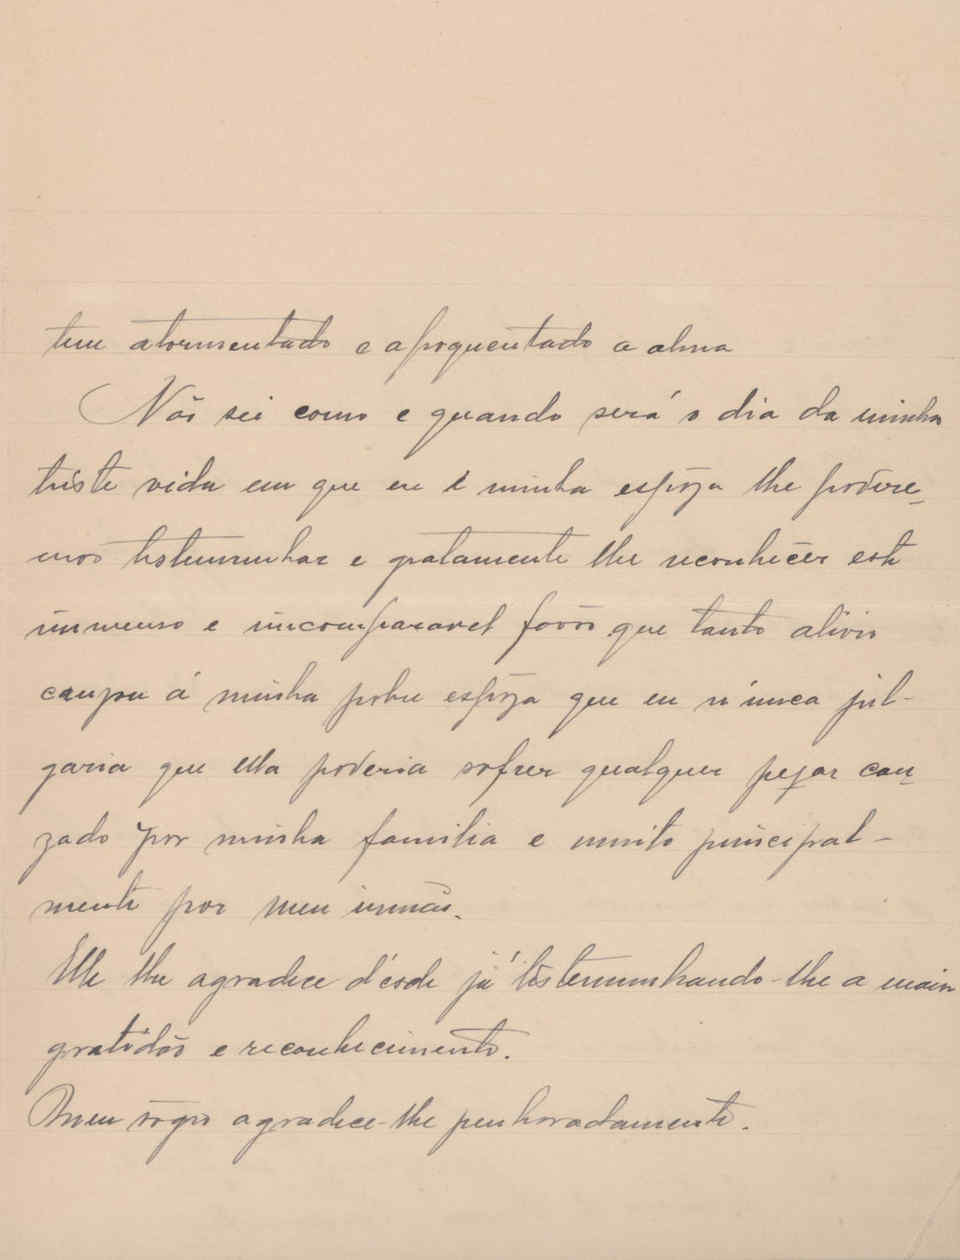 tem atormentado e apoquentado a alma
Não sei como e quando será o dia da minha
triste vida em que eu e minha espôza lhe podere-
mos testemunhar e gratamente lhe reconhecêr este
immenso e incomparavel favôr que tanto alivio
cauza á minha pobre espôza que eu nunca jul-
garia que ella poderia sofrer qualquer pezar cau-
zado por minha familia e muito principal-
mente por meu irmão.
Elle lhe agradece désde já testemunhando-lhe a maior
gratidão e reconhecimento.
Meu sôgro agradece-lhe penhoradamente.